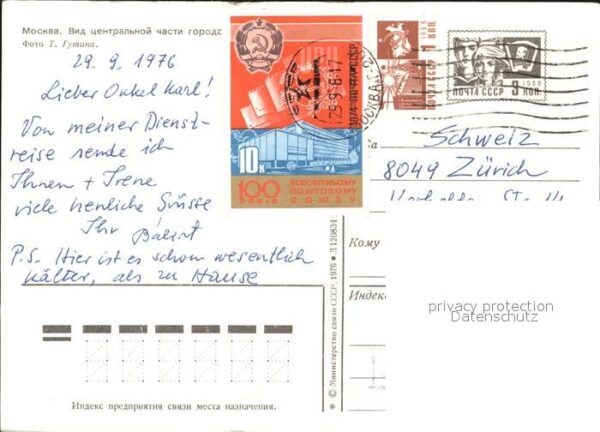 Москва. Вид центральной части города
Фото Т. Гутина.
29. 9. 1976
Lieber Onkel Karl!
Von meiner Dienst-
reise sende ich
Ihnen + Irene
viele herzliche Grüsse
Ihr Bálint
P.S. Hier ist es schon wesentlich
kälter, als zu Hause
10к
100 РОКІВ
ВСЕСВІТНЬОМУ
ПОШТОВОМУ
СОЮЗУ
1974 ПОЧТА СССР
1 КОП
ПОЧТА СССР
1966
ПОЧТА СССР 3 КОП.
Schweiz
8049 Zürich
Кому
Индекс
privacy protection
Datenschutz
© Министерство связи СССР, 1976 ★ Л 120834
Индекс предприятия связи места назначения.